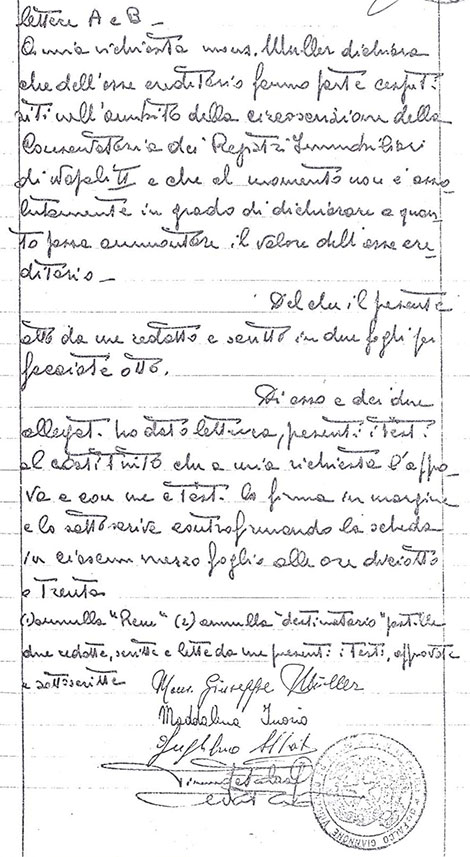 lettere A e B -
A mia richiesta mons. Müller dichiara
che dell'asse ereditario fanno parte cespiti
siti nell'ambito della circoscrizione della
Conservatoria dei Registri Immobiliari
di Napoli II e che al momento non è asso-
lutamente in grado di dichiarare a quan-
to possa ammontare il valore dell'asse ere-
ditario -
Del che il presente
atto da me redatto e scritto in due fogli per
facciate otto.
Di esso e dei due
allegati ho dato lettura, presenti i testi
al costituito che a mia richiesta l'appro-
va e con me e testi lo firma in margine
e lo sottoscrive controfirmando la scheda
in ciascun mezzo foglio alle ore diciotto
e trenta
(1) annulla "Rene" (2) annulla "destinatario" postille
due redatte, scritte e lette da me presenti i testi, approvate
e sottoscritte
Mons. Giuseppe Müller
Maddalena Iuorio
FALCO GIANNONE